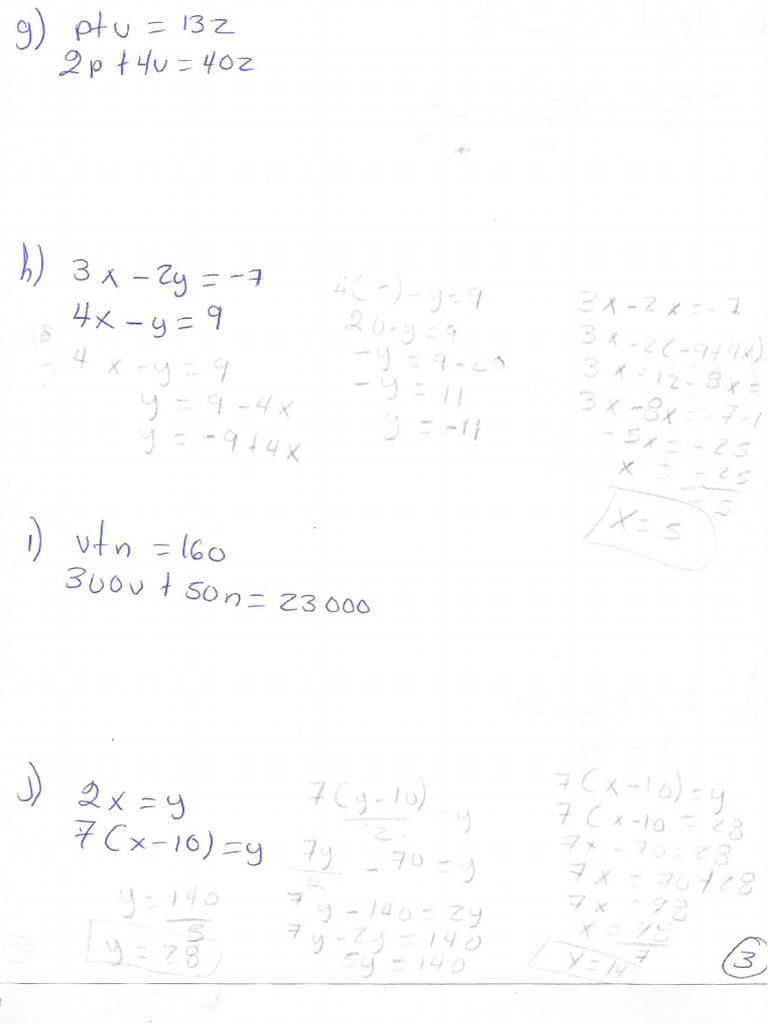 g) p+v = 132
2p+4v=402
h) 3x-2y=-7
4x-y=9
4x-y=9
y = 9-4x
y = -9+4x
4(5)-y=9
20-y=9
-y = 9-20
-y = 11
y = -11
3x-2x=-7
3x-2(-9+4x)
3x+12-8x=
3x-8x=-7-1
-5x=-25
x = -25
-5
x=5
i) v+n = 160
300v + 50n = 23000
j) 2x=y
7(x-10)=y
y = 140
5
y = 28
7(y-10) = y
2
7y - 70 = y
2
7y-140=2y
7y-2y=140
5y=140
7(x-10)=y
7(x-10=28
7x-70=28
7x=70+28
7x=98
x=98
7
x=14
3